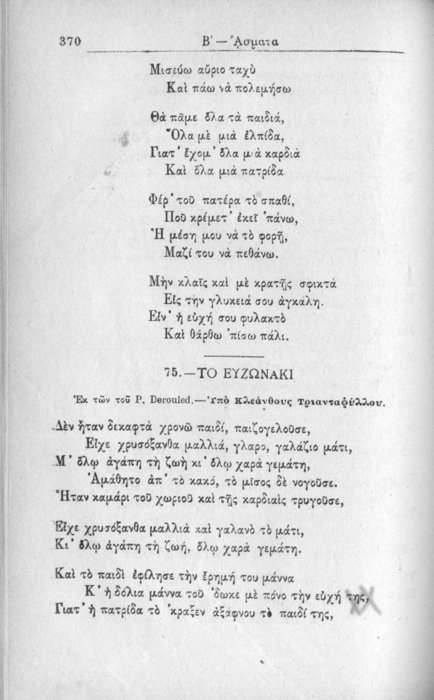 370
Β' — ᾌσματα
Μισεύω αὔριο ταχὺ
Καὶ πάω νὰ πολεμήσω
Θὰ πᾶμε ὅλα τὰ παιδιά,
Ὅλα μὲ μιὰ ἐλπίδα,
Γιατ' ἔχομ' ὅλα μιὰ καρδιὰ
Καὶ ὅλα μιὰ πατρίδα
Φέρ' τοῦ πατέρα τὸ σπαθί,
Ποῦ κρέμετ' ἐκεῖ 'πάνω,
Ἡ μέση μου νὰ τὸ φορῇ,
Μαζί του νὰ πεθάνω.
Μὴν κλαῖς καὶ μὲ κρατῇς σφικτὰ
Εἰς τὴν γλυκειά σου ἀγκάλη.
Εἶν' ἡ εὐχή σου φυλακτὸ
Καὶ θἄρθω 'πίσω πάλι.
75.—ΤΟ ΕΥΖΩΝΑΚΙ
Ἐκ τῶν τοῦ P. Derouled.—Ὑπὸ Κλεάνθους Τριανταφύλλου.
Δὲν ἦταν δεκαφτὰ χρονῶ παιδί, παιζογελοῦσε,
Εἶχε χρυσόξανθα μαλλιά, γλαρο, γαλάζιο μάτι,
Μ' ὅλῳ ἀγάπη τὴ ζωὴ κι' ὅλῳ χαρὰ γεμάτη,
Ἀμάθητο ἀπ' τὸ κακό, τὸ μῖσος δὲ νογοῦσε.
Ἦταν καμάρι τοῦ χωριοῦ καὶ τῆς καρδιαῖς τρυγοῦσε,
Εἶχε χρυσόξανθα μαλλιὰ καὶ γαλανὸ τὸ μάτι,
Κι' ὅλῳ ἀγάπη τὴ ζωή, ὅλῳ χαρὰ γεμάτη.
Καὶ τὸ παιδὶ ἐφίλησε τὴν ἔρημή του μάννα
Κ' ἡ δόλια μάννα τοῦ 'δωκε μὲ πόνο τὴν εὐχή της,
Γιατ' ἡ πατρίδα τὸ 'κραξεν ἀξάφνου τὸ παιδί της,